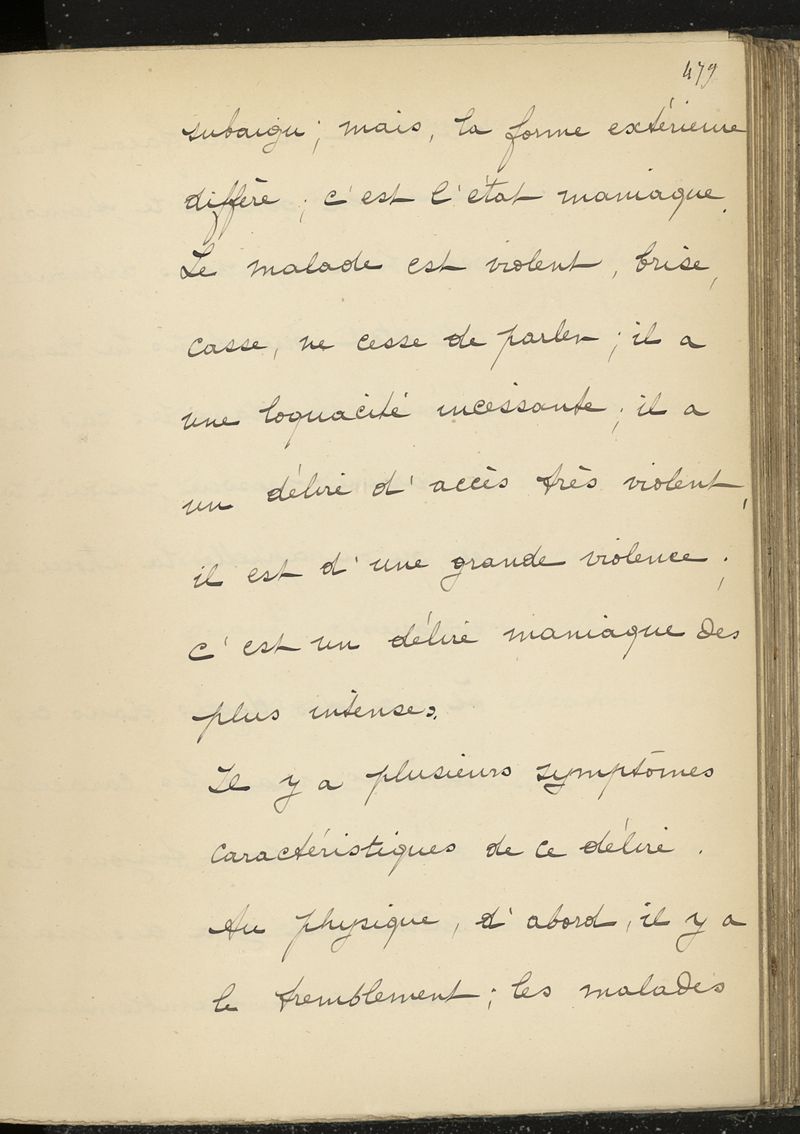 479
subaigu ; mais, la forme extérieure
diffère ; c'est l'état maniaque.
Le malade est violent, brise,
casse, ne cesse de parler ; il a
une loquacité incessante ; il a
un délire d'accès très violent,
il est d'une grande violence ;
c'est un délire maniaque des
plus intenses.
Il y a plusieurs symptômes
caractéristiques de ce délire.
Au physique, d'abord, il y a
le tremblement ; les malades